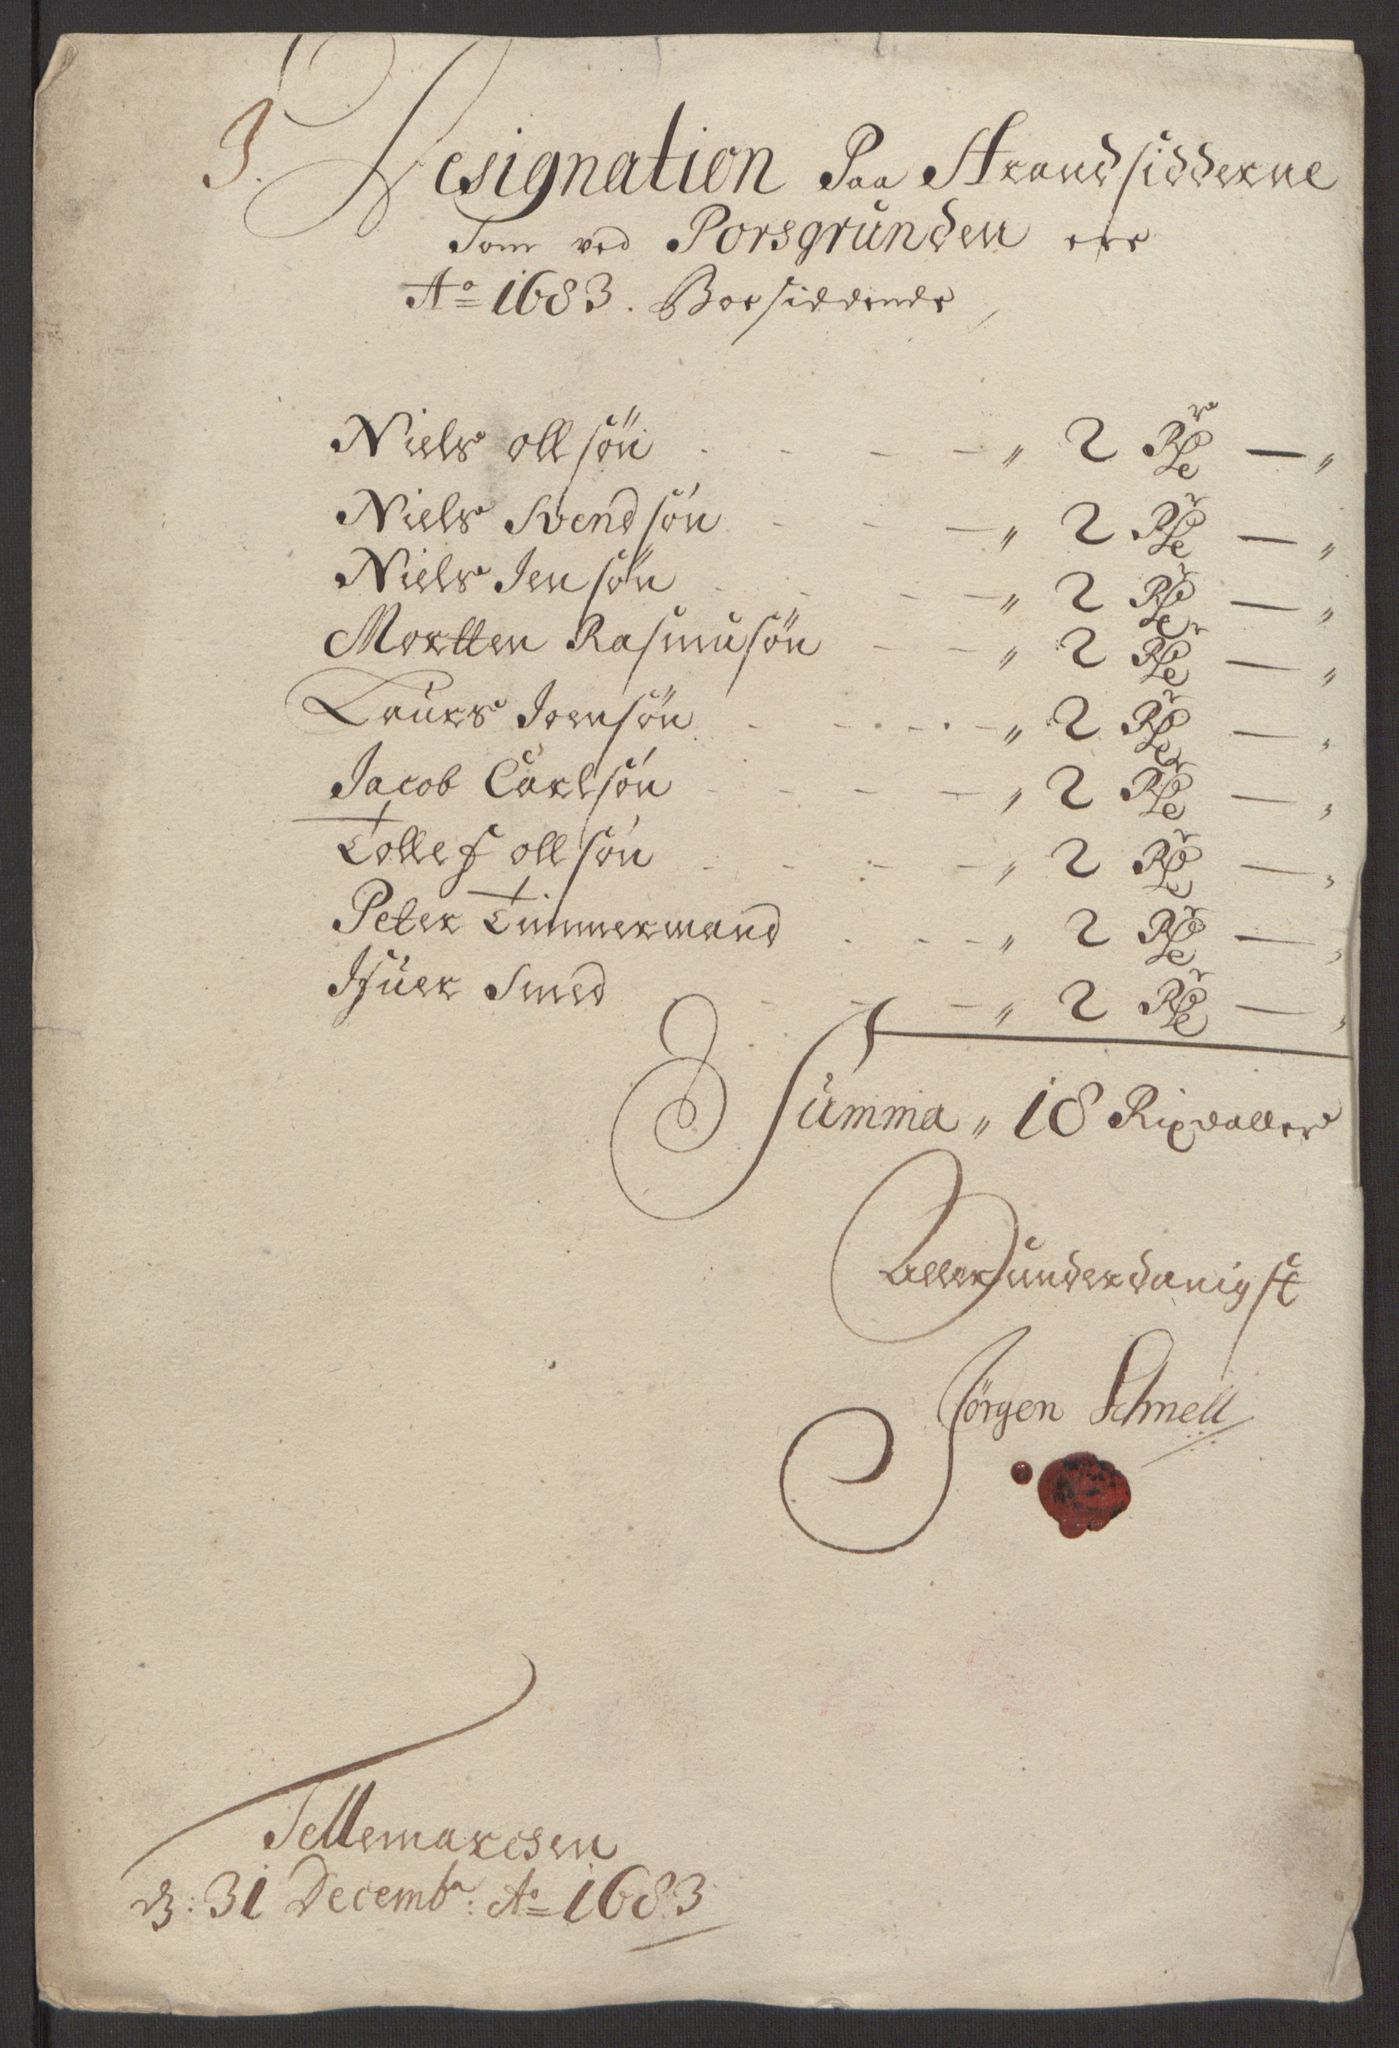 3.
Designation Paa Strandsidderne
Som ved Porsgrunden ere
Ao 1683. Boesiddende
Niels ollsøn - - - - " 2 Rdr — "
Niels Svendsøn - - - " 2 Rdr — "
Niels Jensøn - - - - " 2 Rdr — "
Mortten Rasmusøn - - " 2 Rdr — "
Laurs Joensøn - - - - " 2 Rdr — "
Jacob Carlsøn - - - - " 2 Rdr — "
Tollef ollsøn - - - - " 2 Rdr — "
Peter Timmermand - - - " 2 Rdr — "
Ifuer Smed - - - - " 2 Rdr — "
Summa " 18 Rixdallere
Allerunderdanigst
Jörgen Schnell
Tellemarcken
d: 31 Decembr: Ao 1683